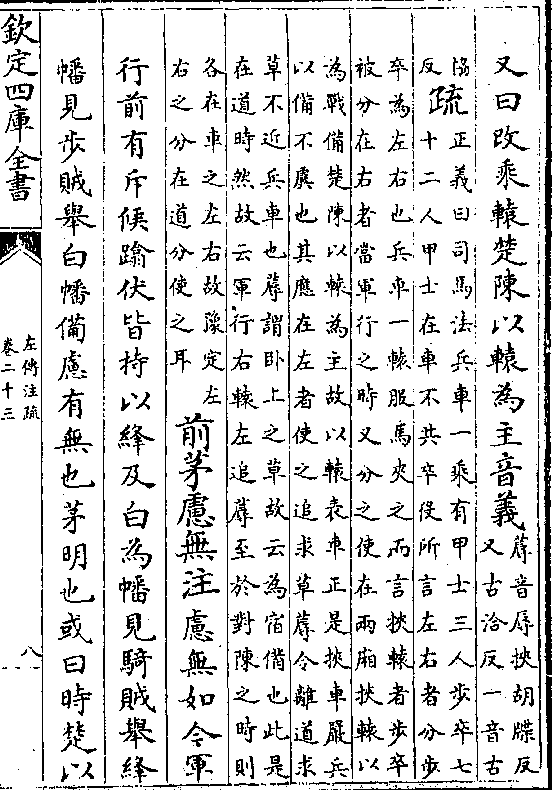 又曰改乘轅楚陳以轅為主音義
蓐音辱挾胡牒反
又古洽反一音古
協
反
疏
正義曰司馬法兵車一乘有甲士三人步卒七
十二人甲士在車不共卒伇所言左右者分步
卒為左右也兵車一轅服馬夾之而言挾轅者步卒
被分在右者當軍行之時又分之使在兩廂挾轅以
為戰備楚陳以轅為主故以轅表車正是挾車嚴兵
以備不虞也其應在左者使之追求草蓐令離道求
草不近兵車也蓐謂卧上之草故云為宿備也此是
在道時然故云軍行右轅左追蓐至於對陳之時則
各在車之左右故豫定左
右之分在道分使之耳
前茅慮無注慮無如今軍
行前有斥候踰伏皆持以絳及白為幡見騎賊舉絳
幡見步賊舉白幡備慮有無也茅明也或曰時楚以
欽定四庫全書
左傳注疏
卷二十三
八